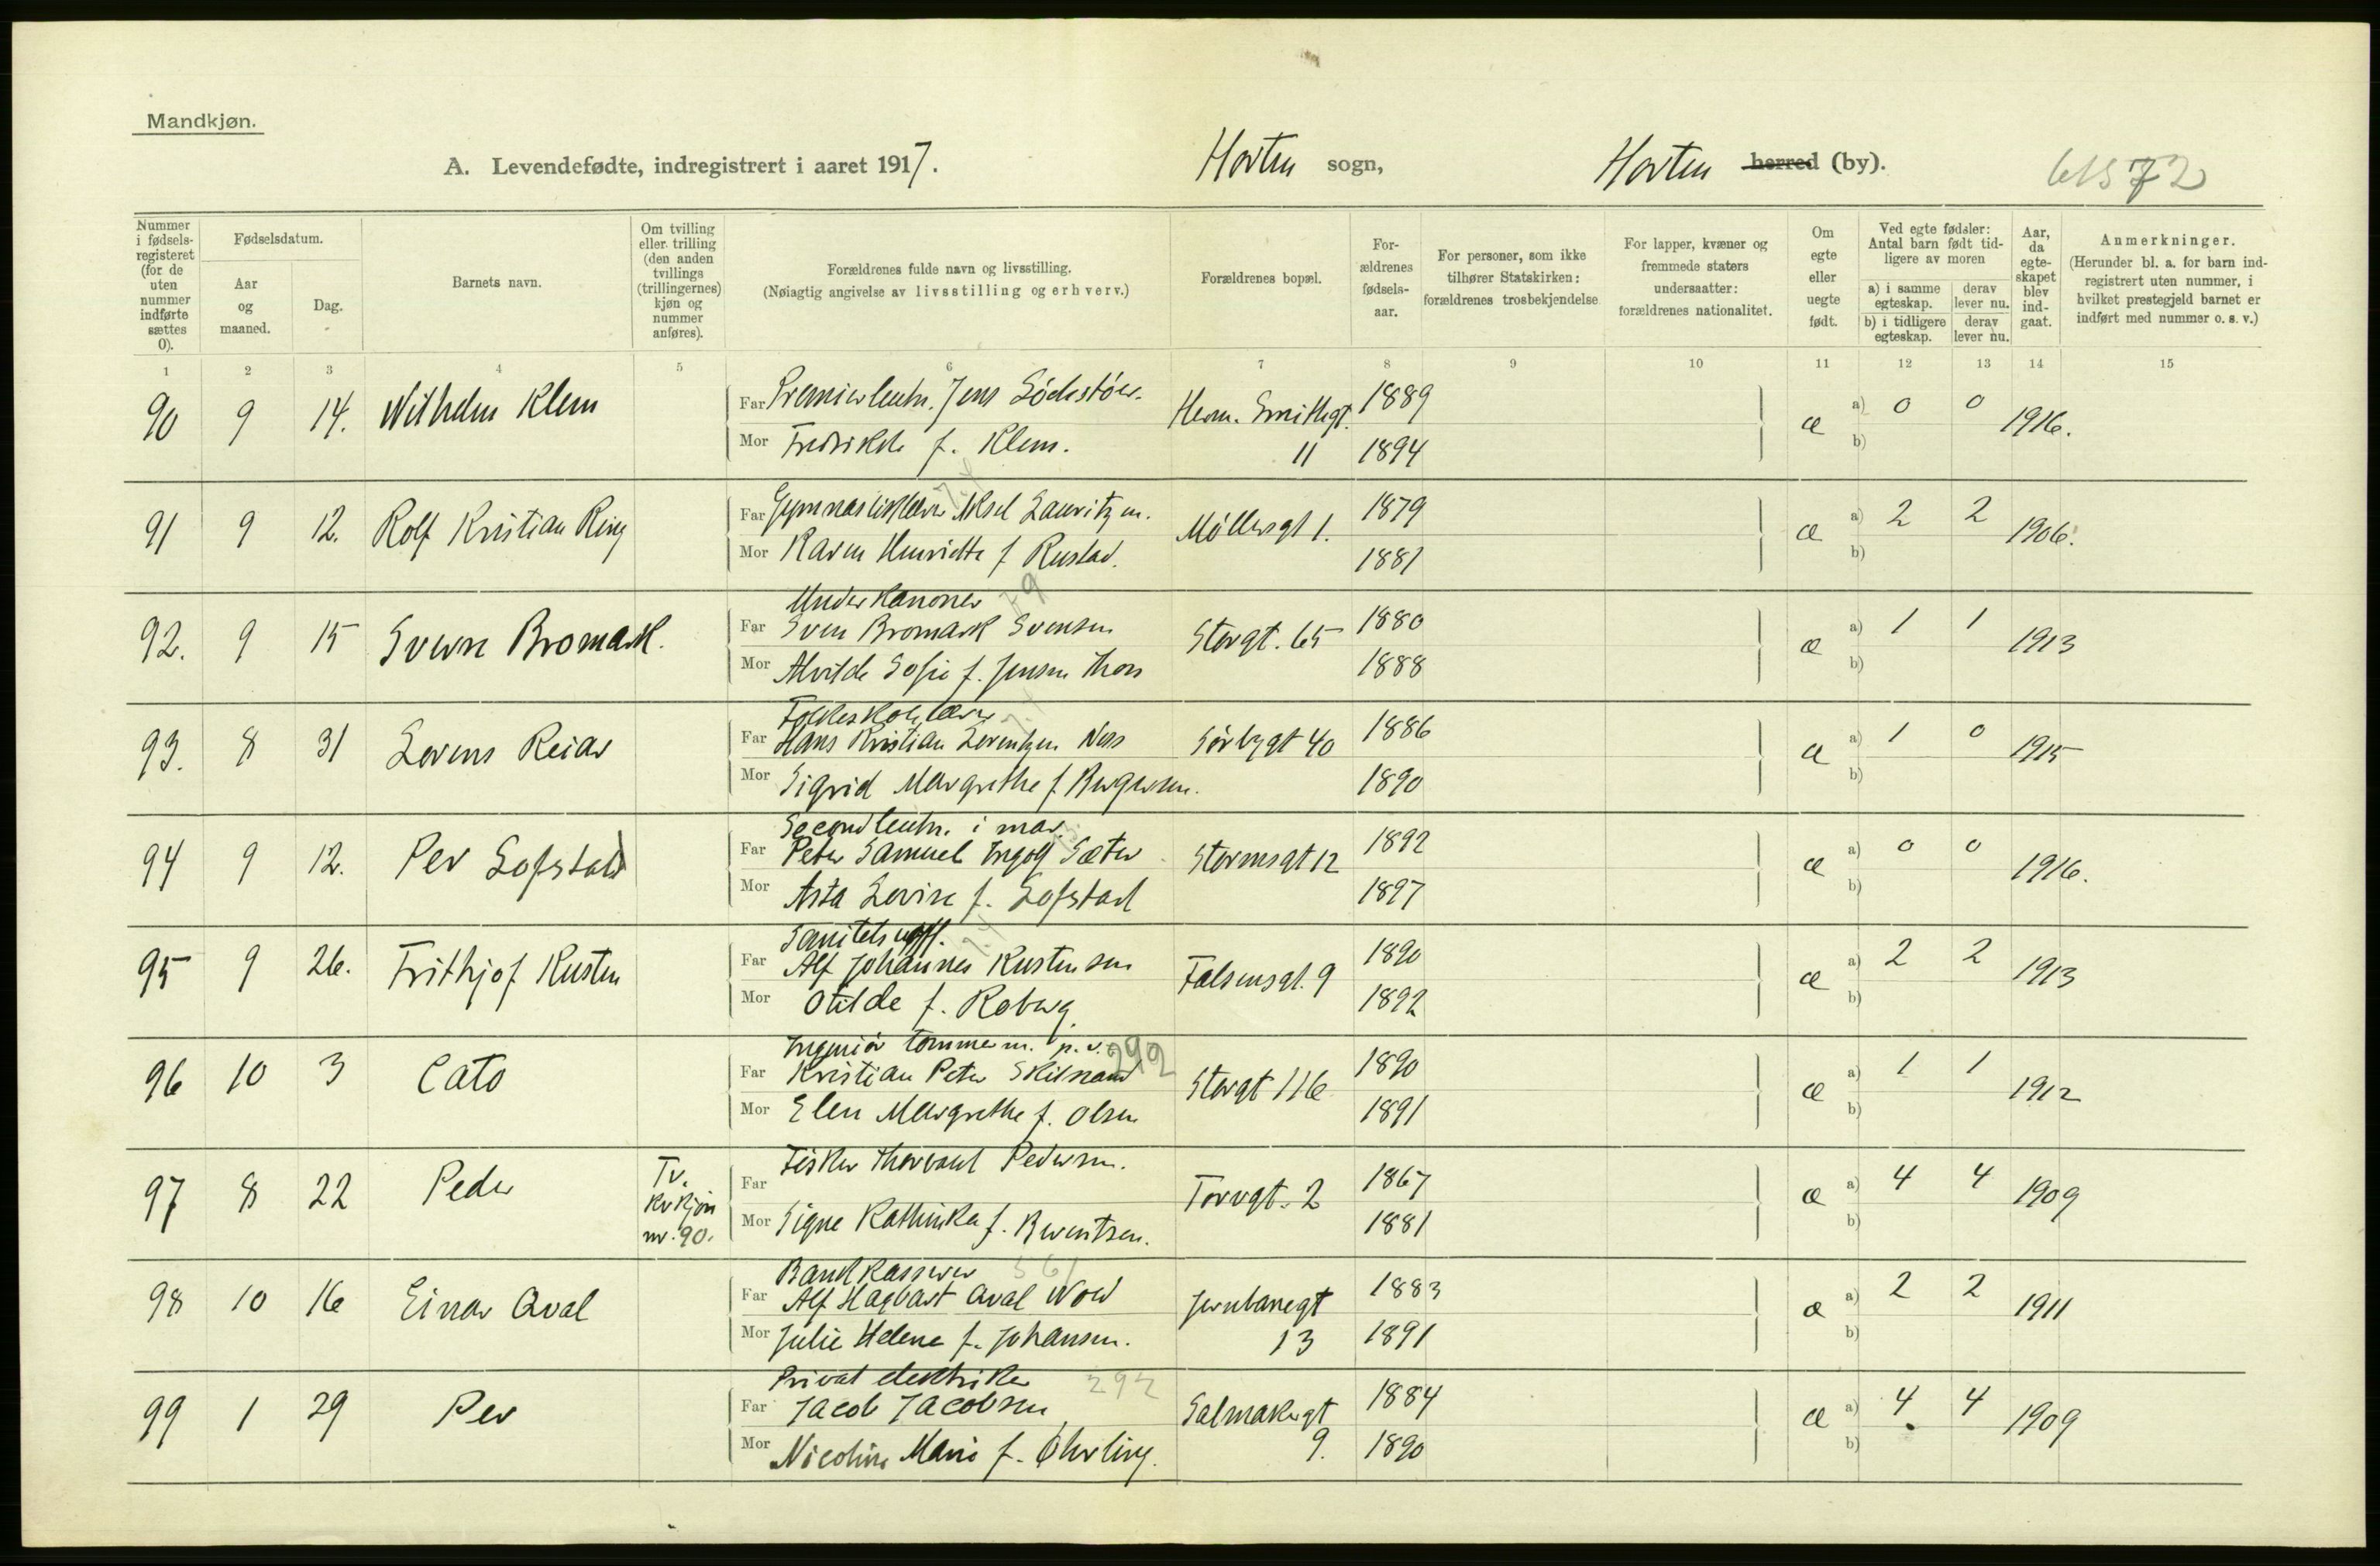 Mandkjøn.
A. Levendefødte, indregistrert i aaret 1917. Horten sogn, Horten herred (by).
Nummer i fødselsregisteret (for de uten nummer indførte sættes 0).
Fødselsdatum.
Aar og maaned.
Dag.
Barnets navn.
Om tvilling eller trilling (den anden tvillings (trillingernes) kjøn og nummer anføres).
Forældrenes fulde navn og livsstilling.
(Nøiagtig angivelse av livsstilling og erhverv.)
Forældrenes bopæl.
Forældrenes fødselsaar.
For personer, som ikke tilhører Statskirken: forældrenes trosbekjendelse
For lapper, kvæner og fremmede staters undersaatter: forældrenes nationalitet.
Om egte eller uegte født.
Ved egte fødsler: Antal barn født tidligere av moren
a) i samme egteskap. derav lever nu.
b) i tidligere egteskap. derav lever nu.
Aar, da egteskapet blev indgaat.
Anmerkninger.
(Herunder bl. a. for barn indregistrert uten nummer, i hvilket prestegjeld barnet er indført med nummer o. s. v.)
1 2 3 4 5 6 7 8 9 10 11 12 13 14 15
90 9 14. Wilhelm Klem
Far Premierleutn. Jens Herm. Smithsgt. 1889 æ a) 0 0 1916.
Mor Fredrikke f. Klem. 11 1894 b)
91 9 12. Rolf Kristian Ring
Far Gymnastiklærer Aksel Lauritzen. Møllersgt 1. 1879 æ a) 2 2 1906.
Mor Karen Henriette f Rustad. 1881 b)
92. 9 15 Sverre Bromark.
Underkanoner
Far Sven Bromark Svensen Storgt. 65 1880 æ a) 1 1 1913
Mor Alvilde Sofie f. Jensen Thon 1888 b)
93. 8 31 Lorens Reidar
Folkeskolelærer
Far Hans Kristian Lorentzen Næss Sørbygt 40 1886 æ a) 1 0 1915
Mor Sigrid Margrethe f. Bergersen. 1890 b)
94 9 12. Per Lofstad
Secondleutn. i mar.
Far Peter Samuel Ingolf Sæter Stormsgt 12 1892 æ a) 0 0 1916.
Mor Asta Lovise f. Lofstad 1897 b)
95 9 26. Frithjof Kusten
Sanitets uoff.
Far Alf Johannes Kustensen Falsensgt. 9 1890 æ a) 2 2 1913
Mor Otilde f. Roberg 1892 b)
96 10 3 Cato
Ingeniør tømmerm. p. v. 292
Far Kristian Peter Skilnand Storgt 116 1890 æ a) 1 1 1912
Mor Elen Margrethe f. Olsen 1891 b)
97 8 22 Peder Tv. kvkjøn nr. 90.
Far Fisker Thorvald Pedersen. Torvgt. 2 1867 æ a) 4 4 1909
Mor Signe Kathinka f. Berentsen. 1881 b)
98 10 16 Einar Aval
Bankkasserer
Far Alf Hagbart Aval Wold Jernbanegt 1883 æ a) 2 2 1911
Mor Julie Helene f. Johansen. 13 1891 b)
99 1 29 Per
Privat elektriker 292
Far Jacob Jacobsen Salmakergt 1884 æ a) 4 4 1909
Mor Nicoline Marie f. Øhrling. 9. 1890 b)